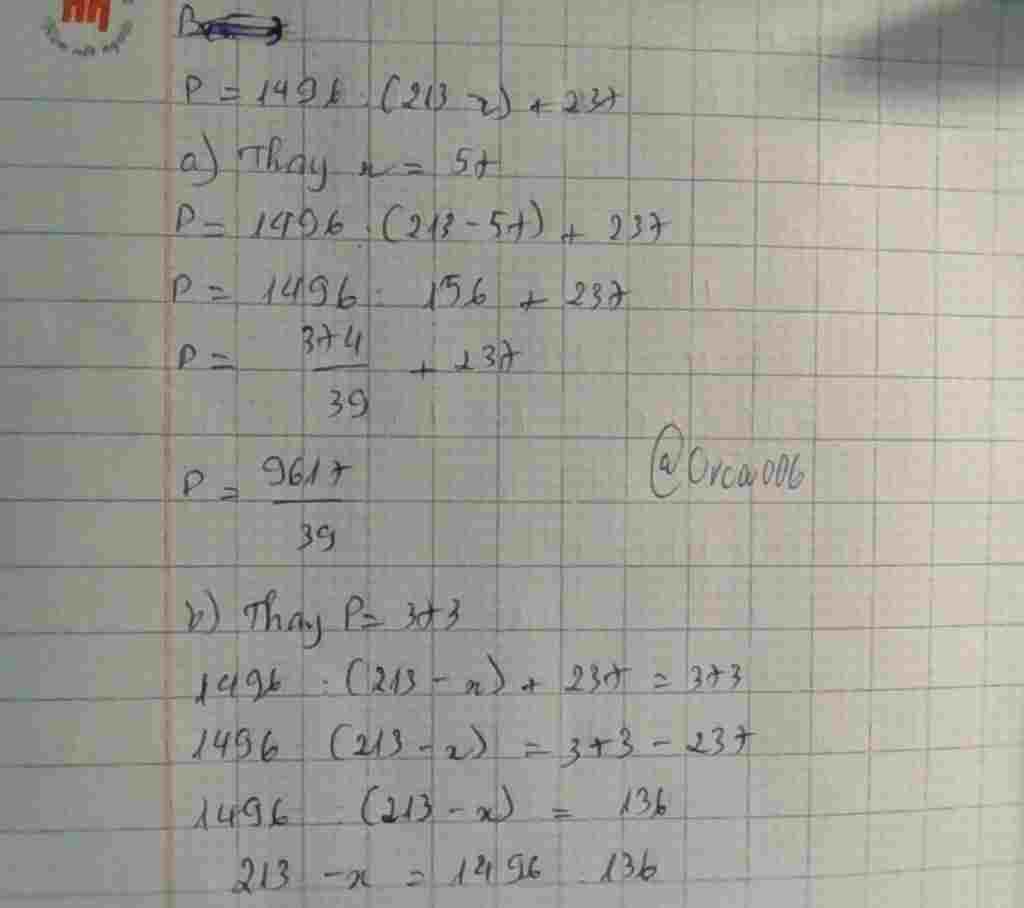 P = 1496 : (213 - x) + 237
a) Thay x = 57
P = 1496 : (213 - 57) + 237
P = 1496 : 156 + 237
P = 374/39 + 237
@Orca006
P = 9617/39
b) Thay P = 373
1496 : (213 - x) + 237 = 373
1496 (213 - x) = 373 - 237
1496 (213 - x) = 136
213 - x = 1496 136